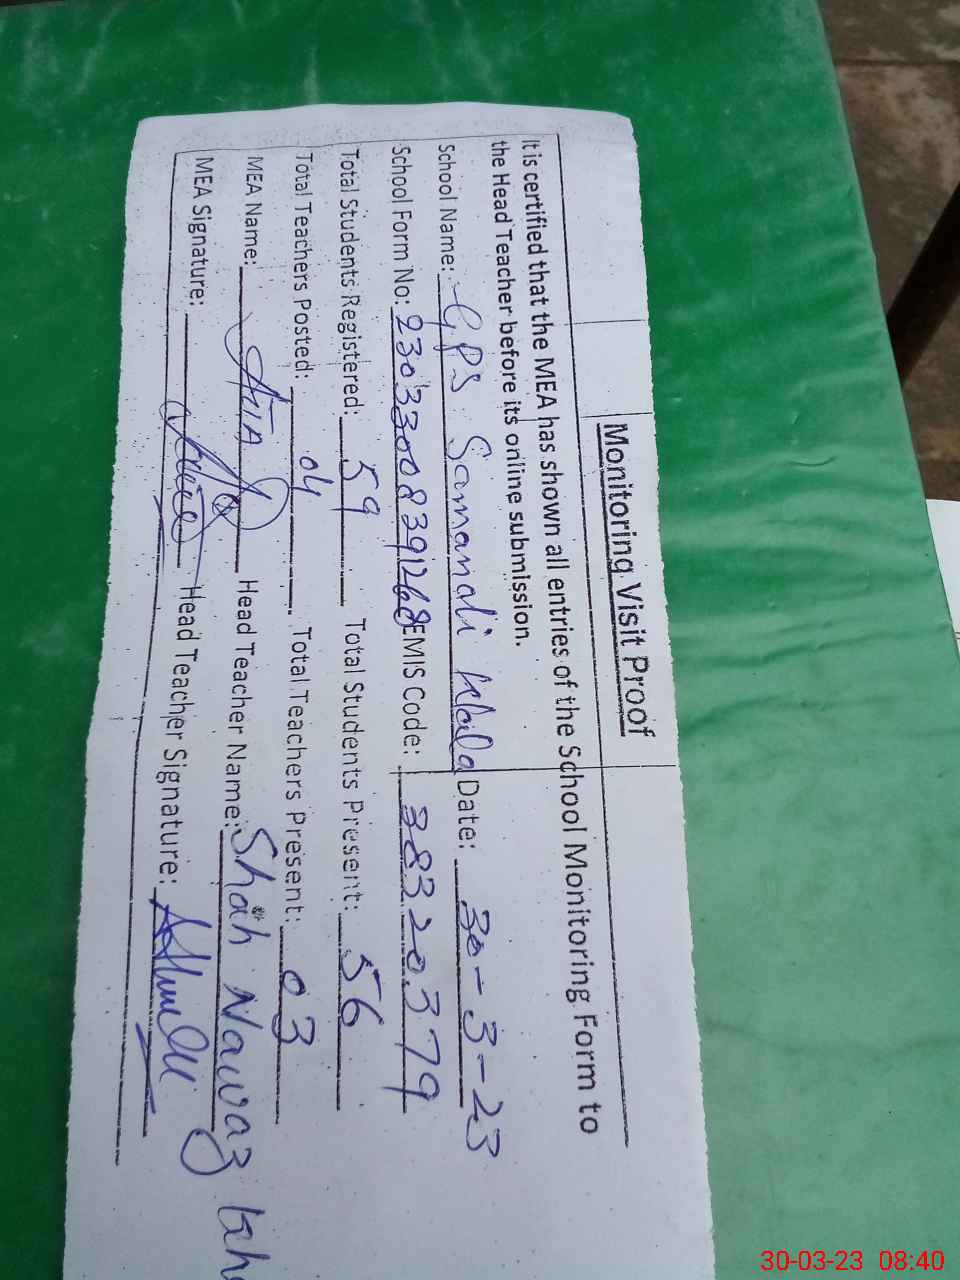 Monitoring Visit Proof
It is certified that the MEA has shown all entries of the School Monitoring Form to
the Head Teacher before its online submission.
School Name: GPS Samandi Date: 30-3-23
School Form No: 2303300839268 EMIS Code: 38320379
Total Students Registered: 59 Total Students Present: 56
Total Teachers Posted: 04 Total Teachers Present: 03
MEA Name: Head Teacher Name: Shah Nawaz
MEA Signature: Head Teacher Signature:
30-03-23 08:40